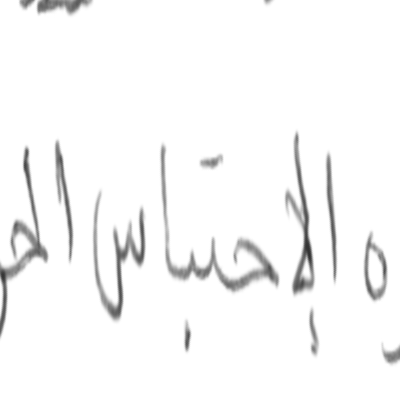 ه الإحتباس الحر